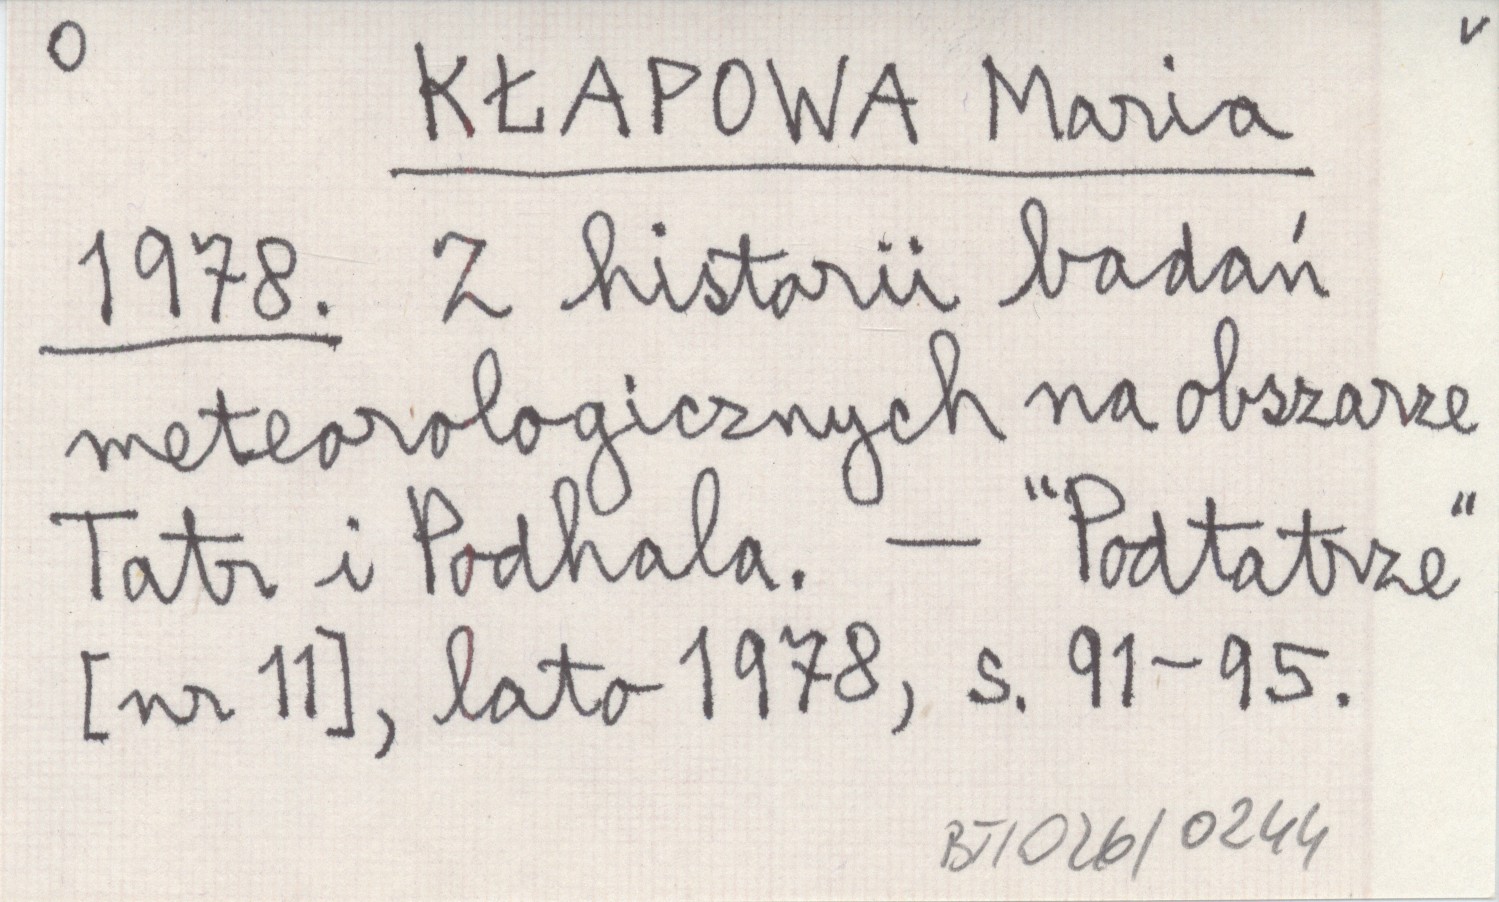 O
v
KŁAPOWA Maria
1978. Z historii badań
meteorologicznych na obszarze
Tatr i Podhala. — "Podtatrze"
[nr 11], lato 1978, s. 91-95.
BT/026/0244